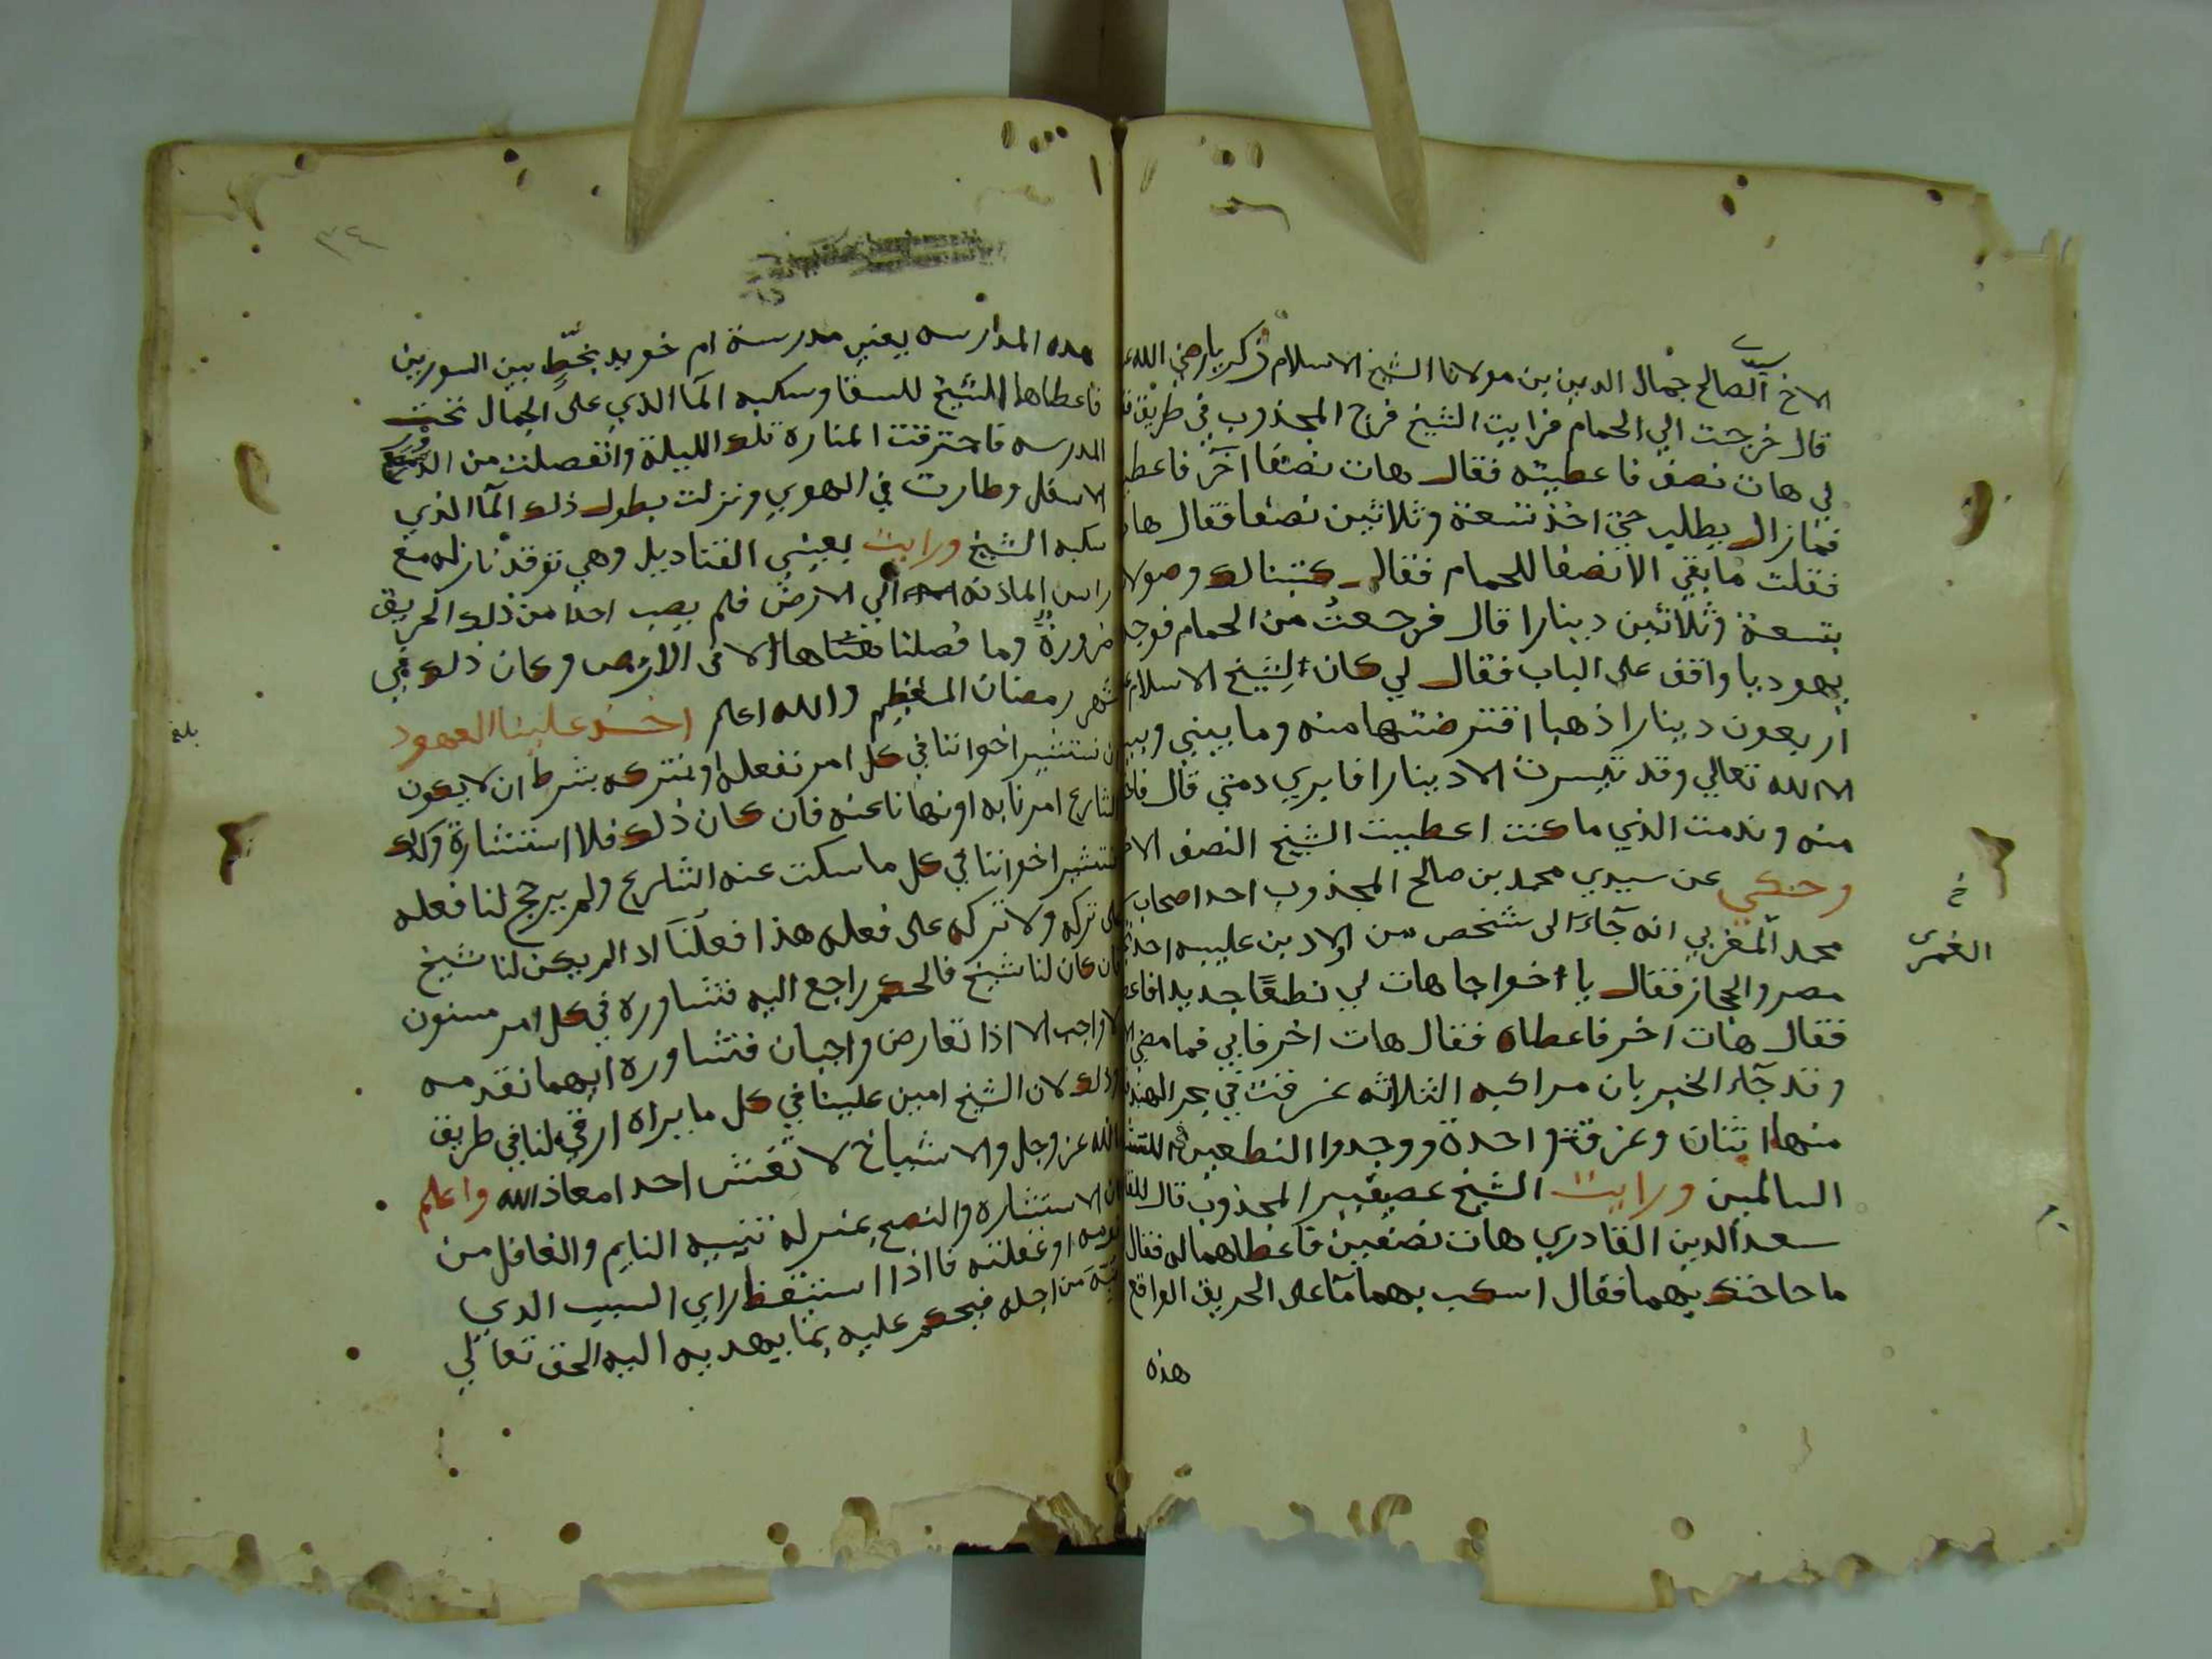 الاخ الصالح سيدي جمال الدين بن مولانا الشيخ الاسلام زكريا رضي الله
قال خرجت الي الحمام فرايت الشيخ فرج المجذوب في طريق
لي هات نصف فاعطيته فقال هات نصفا آخر فاعط
فما زال يطلب حتي اخذ تسعة وثلاثين نصفا فقال هات
فقلت ما بقي الا نصفا للحمام فقال كتبنا لك وصولا
بتسعة وثلاثين دينارا قال فرجعت من الحمام فوجد
يهوديا واقف على الباب فقال لي كان للشيخ الاسلام
اربعون دينارا ذهبا اقترضتها منه وما بيني وبين
الا الله تعالي وقد تيسرت الا دينارا فابري دمتي قال فاخذ
منه وندمت الذي ما كنت اعطيت الشيخ النصف الا
وحكي عن سيدي محمد بن صالح المجذوب احد اصحاب
محمد المغربي انه جآء الى شخص من اولاد بن عليبه احد
مصر والحجاز فقال يا خواجا هات لي نطعًا جديدا فاعط
فقال هات اخر فاعطاه فقال هات اخر فابي فما مضي
وقد جآء الخبر بان مراكبه الثلاثه غرقت في بحر الهند
منها اثنان وغرقت واحدة ووجدوا النطعين
السالمين ورايت الشيخ عصيفير المجذوب قال
سعد الدين القادري هات نصفين فاعطاهما له فقال
ما حاختك بهما فقال اسكب بهما مآ على الحريق الواقع
هذه
خ
الغمرى
٣٤
هده المدارسه يعني مدرسة ام خويد بخط بين السورين
فاعطاها الشيخ للسقا وسكبه المآ الذي على الجمال تحت
المدرسه فاحترقت المناره تلك الليلة وانفصلت من الدور
الاسفل وطارت في الهوي ونزلت بطول ذلك المآ الذي
سكبه الشيخ ورايت بعيني القناديل وهي توقد نازله مع
راس الماذنه الي الارض فلم يصب احدا من ذلك الحريق
ضرورة وما فصلنا الا فى الارض وكان ذلك في
شهر رمضان المعظم والله اعلم اخذ علينا العهود
ان نستشير اخواننا في كل امر نفعله او نتركه بشرط ان لا يكون
الشارع امرنا به او نهانا عنه فان كان ذلك فلا استشارة وكذلك
نستشير اخواننا في كل ما سكت عنه الشارع ولم يرجح لنا فعله
على تركه ولا تركه على فعله هذا فعلنا اذا لم يكن لنا شيخ
فان كان لنا شيخ فالحكم راجع اليه فنشاوره في كل امر مسنون
لا واجب الا اذا تعارض واجبان فنشاوره ايهما نقدمه
وذلك لان الشيخ امين علينا في كل ما يراه ارقي لنا في طريق
الله عز وجل والاشياخ لا تغش احدا معاذ الله واعلم
ان الاستشاره والنصح بمنزلة تنبيه النايم والغافل من
نومه او غفلته فاذا استيقظ راي السبب الدي
من اجله فيحكم عليه بما يهديه اليه الحق تعالي
بلغ